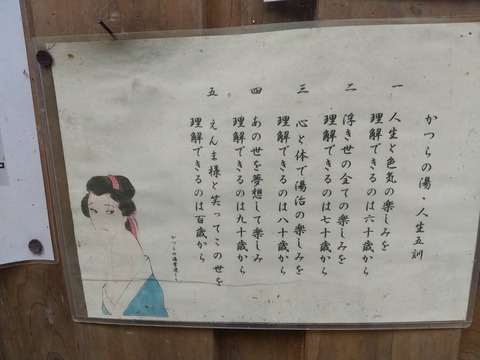 かつらの湯・人生五訓
一 人生と色気の楽しみを
理解できるのは六十歳から
二 浮き世の全ての楽しみを
理解できるのは七十歳から
三 心と体で湯治の楽しみを
理解できるのは八十歳から
四 あの世を夢想して楽しみ
理解できるのは九十歳から
五 えんま様と笑ってこの世を
理解できるのは百歳から